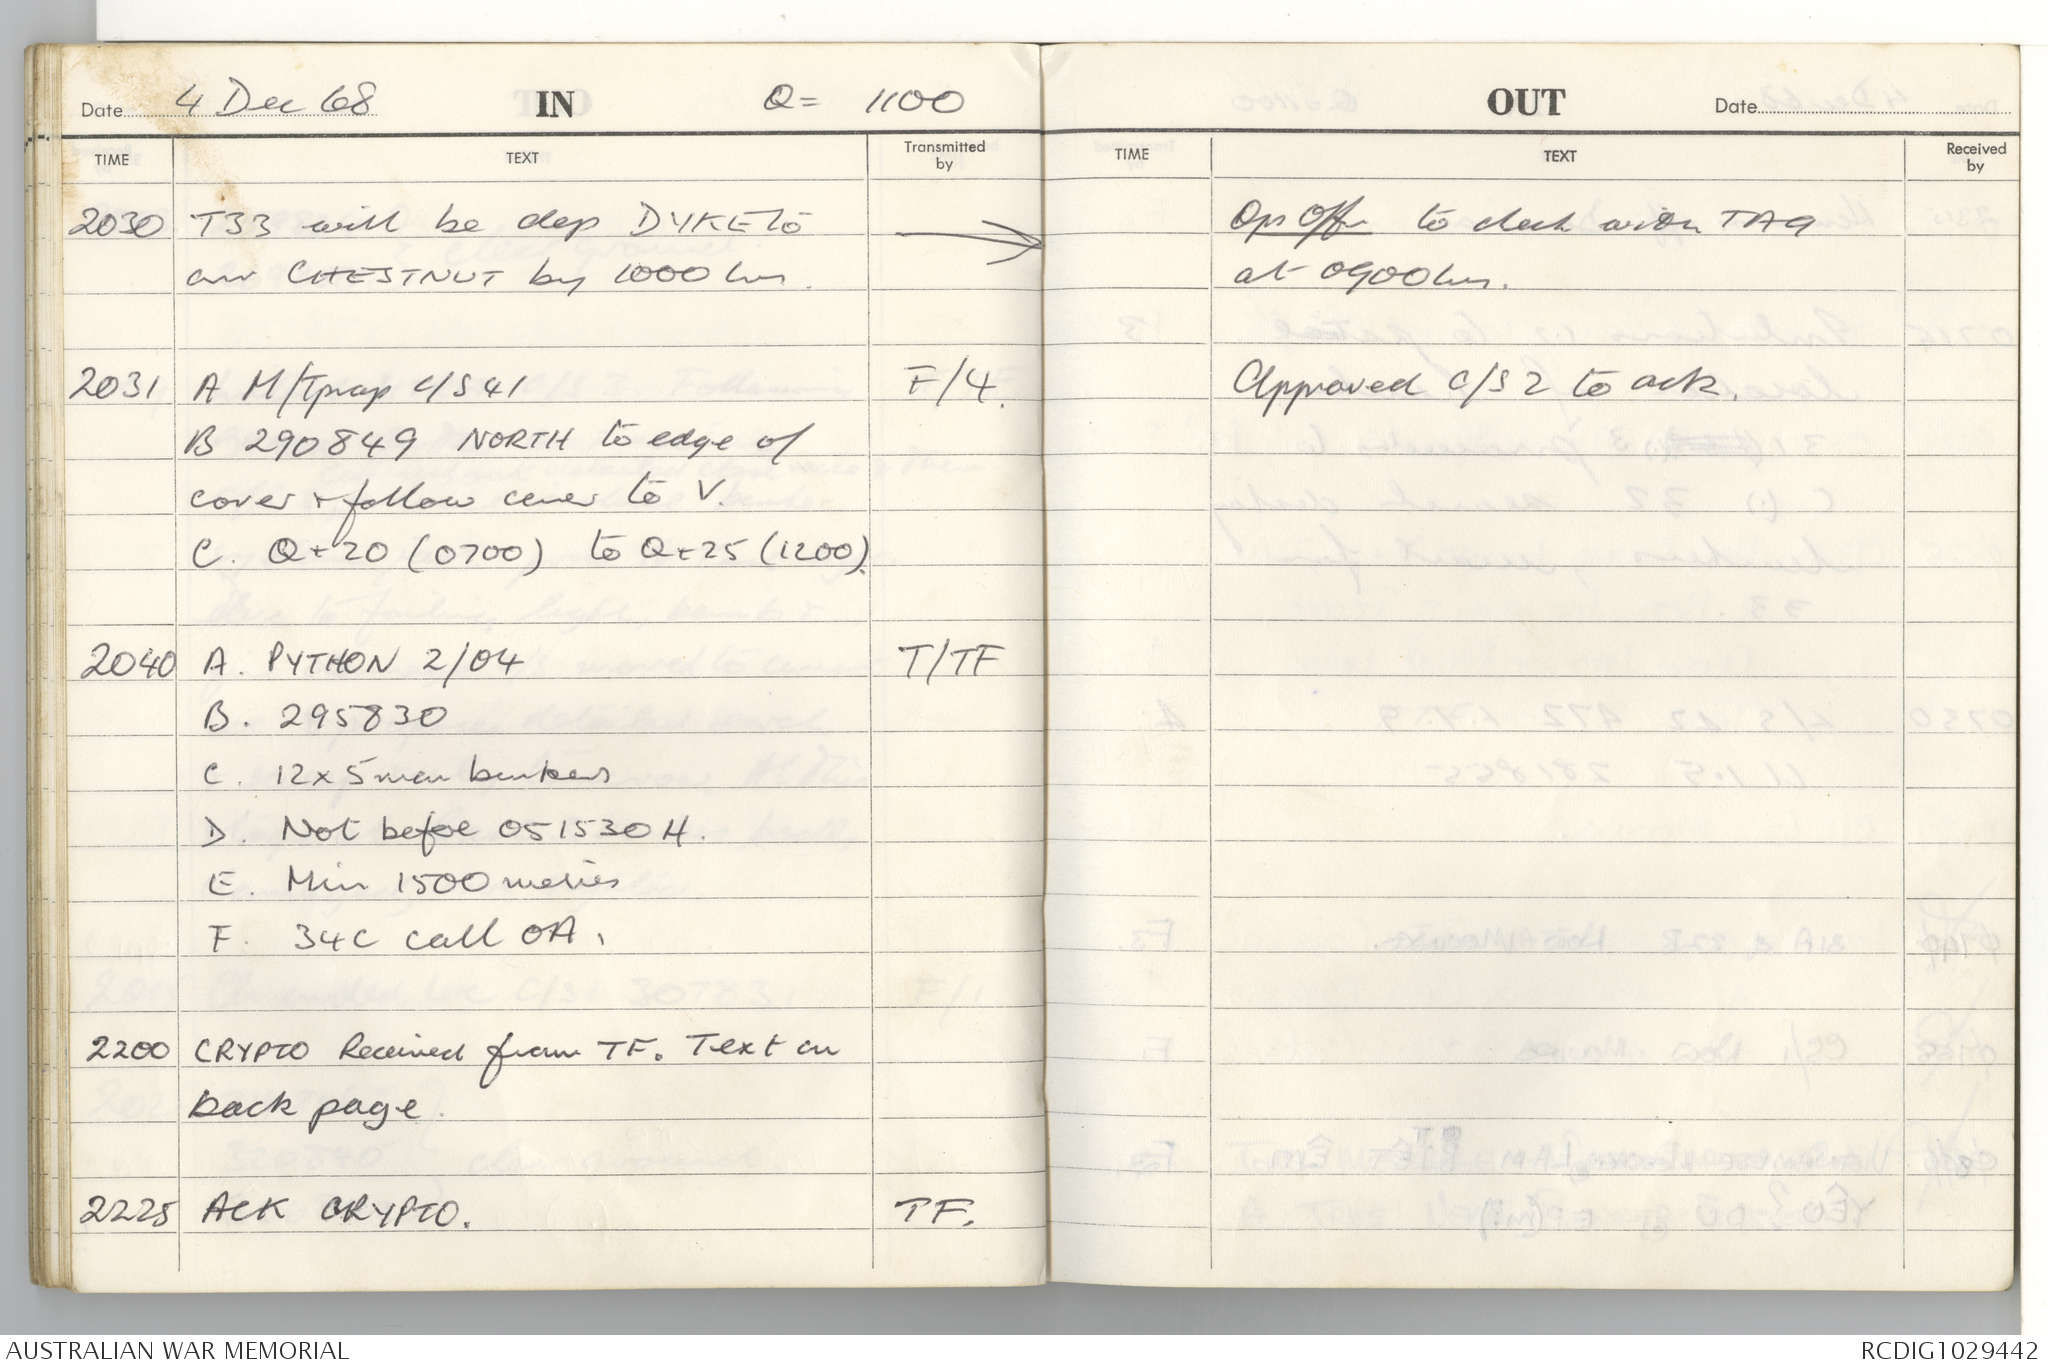 Date 4 Dec 68 IN Q = 1100
TIME TEXT Transmitted by
2030 T33 will be dep DYKE to
arr CHESTNUT by 1000 hrs.
2031 A M/Tprap C/S 41 F/4.
B 290849 NORTH to edge of
cover + follow cover to V.
C. Q+20 (0700) to Q+25 (1200).
2040 A. PYTHON 2/04 T/TF
B. 295830
C. 12 x 5 man bunkers
D. Not befoe 051530H.
E. Min 1500 metres
F. 34C call OA.
2200 CRYPTO Received from TF. Text on
back page.
2225 ACK CRYPTO. TF.
OUT Date
TIME TEXT Received by
Ops Offr to check with TA9
at 0900 hrs.
Approved C/S 2 to ack.
AUSTRALIAN WAR MEMORIAL RCDIG1029442